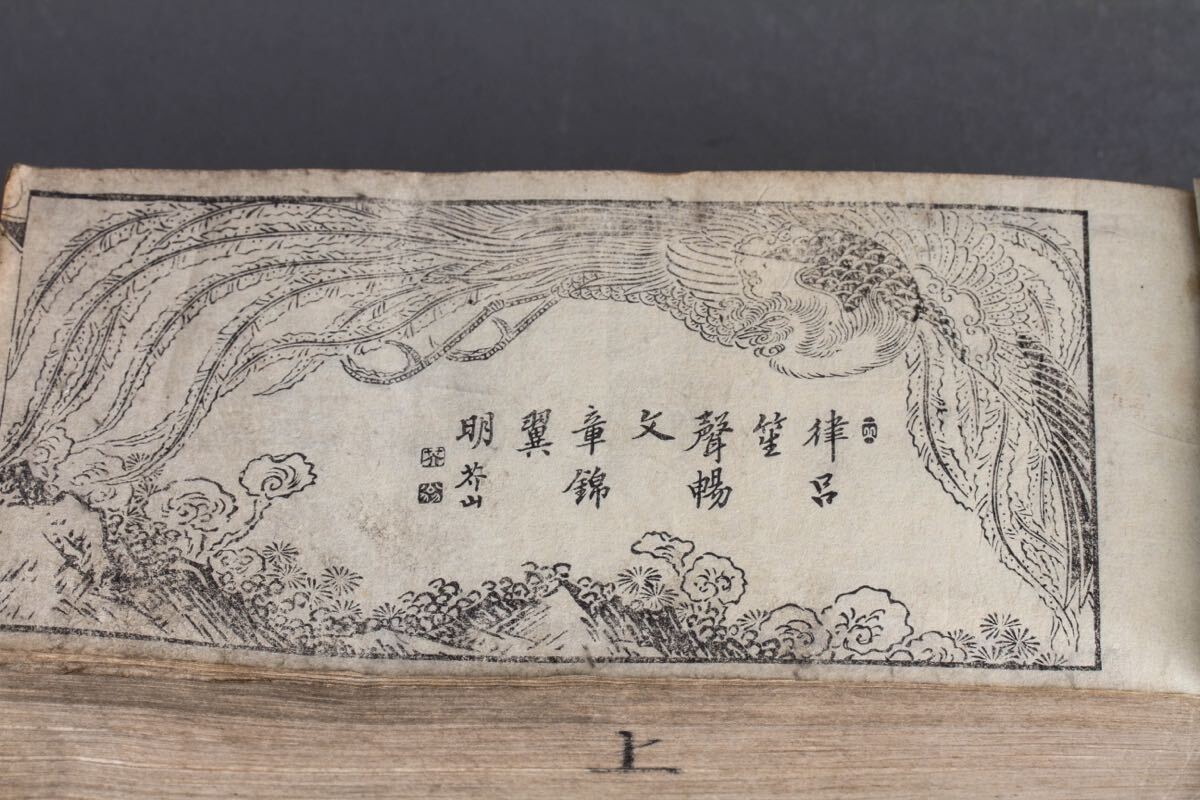 律呂
笙
聲暢
文
章錦
翼
明 芥山
上